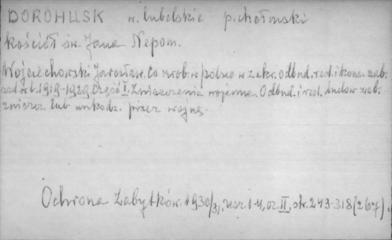 DOROHUSK w. lubelskie p. chełmski
Kościół św. Jana Nepom.
Wojciechowski Jarosław. Co zrob. w polsce w zakr. odbud. rest. i konserw. zab.
od r. 1919-1929. Część I. Zniszczenia wojenne. Odbud. i rest. budow. zab.
zniszcz. lub uszkodz. przez wojnę.
Ochrona Zabytków. 1930/31, zesz. 1-4, cz. II, str. 243-318 (267)